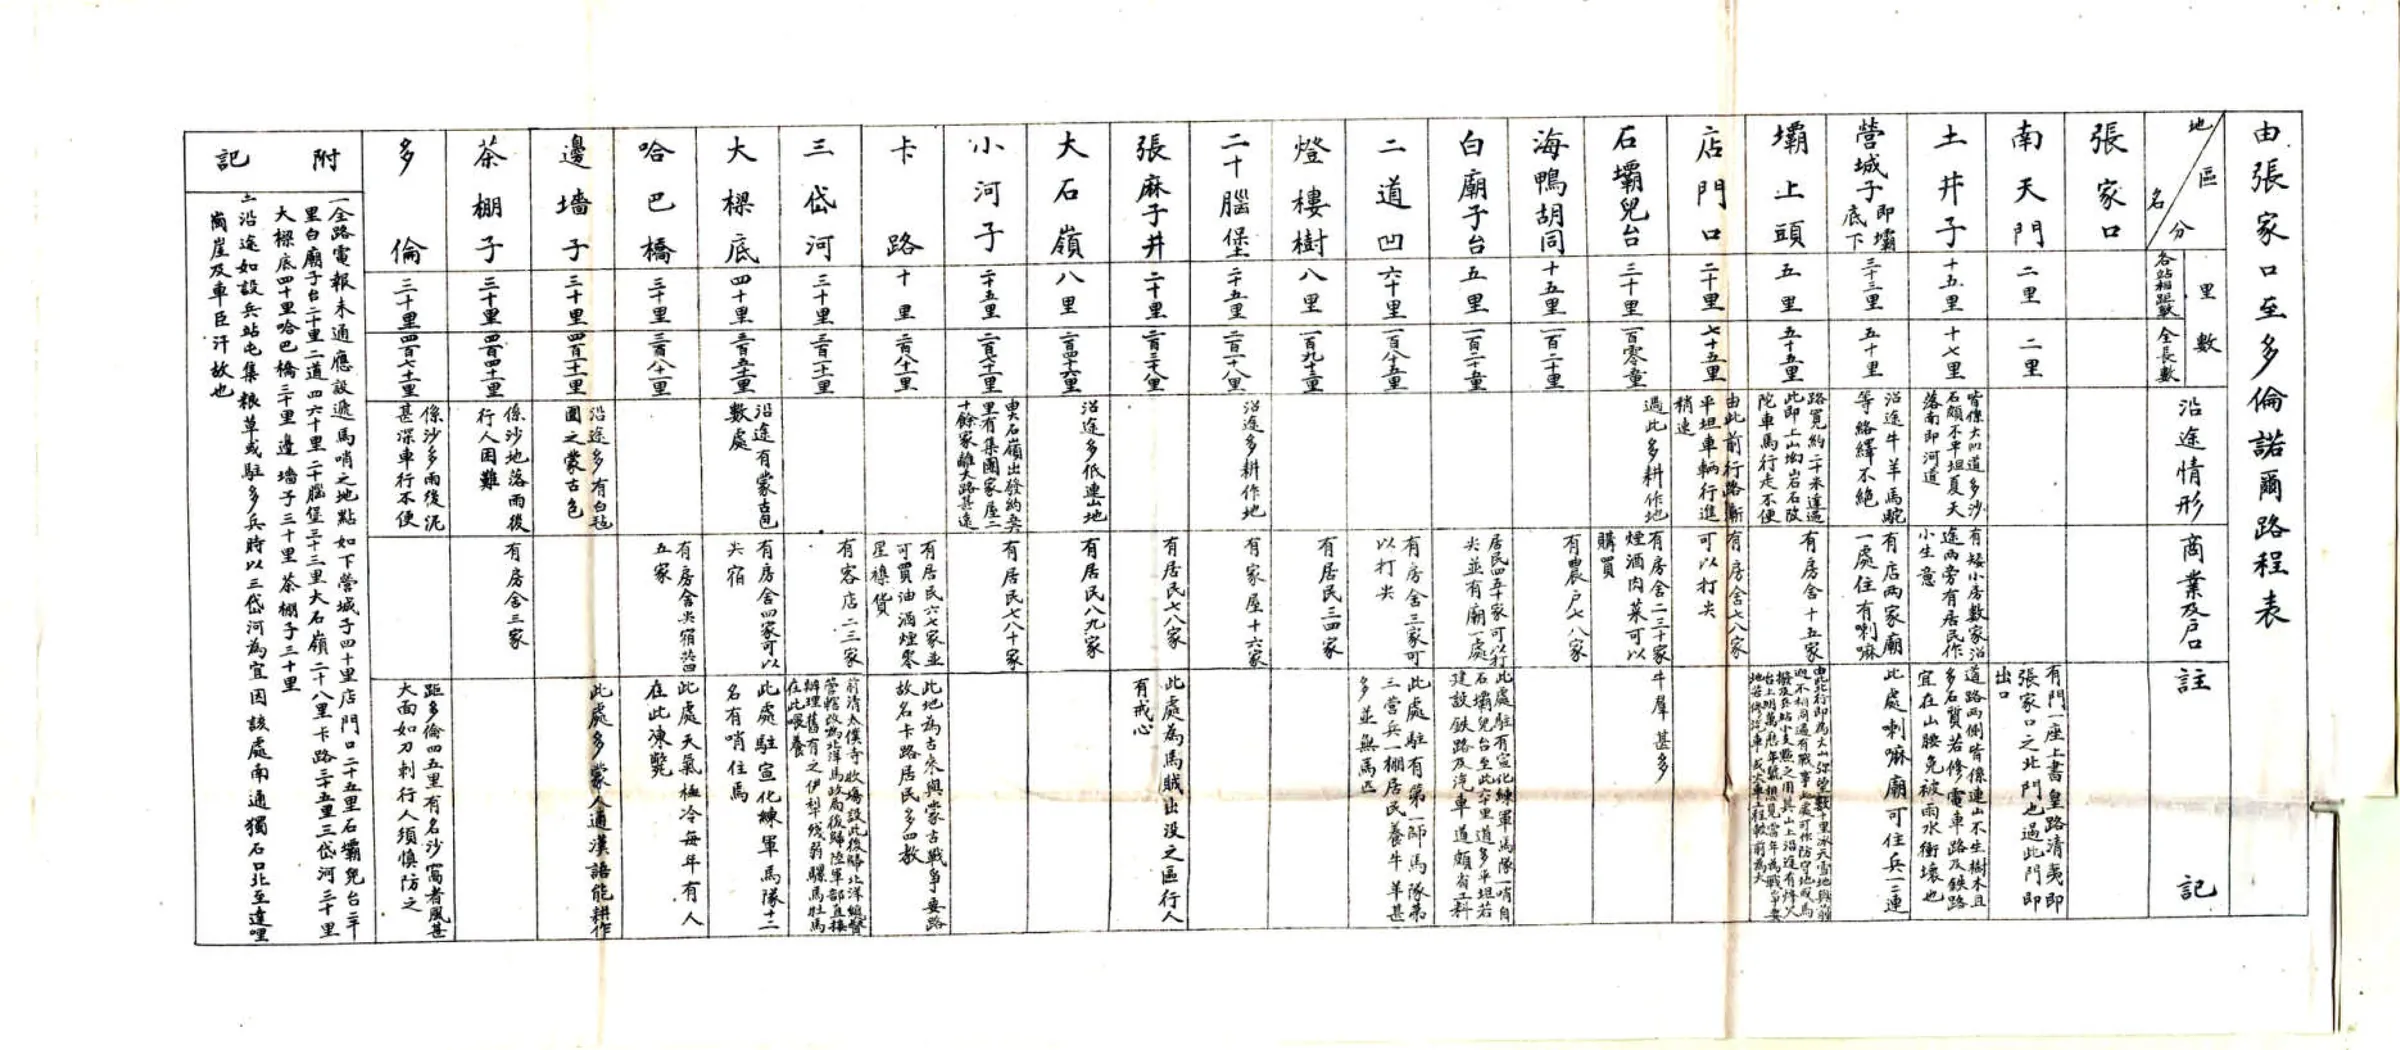 由張家口至多倫諾爾路程表
地名
區分
里數
各站相距數
全長數
沿途情形
商業及戶口
註記
張家口
南天門
二里
二里
有門一座上書皇路清夷即
張家口之北門也過此門即
出口
土井子
十五里
十七里
皆係大川道多沙
石頗不平坦夏天
落雨即河道
有矮小房數家沿
途兩旁有居民作
小生意
道路兩側皆係連山不生樹木且
多石質若修電車路及鉄路
宜在山腰免被雨水衝壞也
營城子即壩
底下
三十三里
五十里
沿途牛羊馬駝
等絡繹不絕
有店兩家廟
一處住有喇嘛
此處喇嘛廟可住兵一二連
壩上頭
五里
五十五里
路寬約二十米達過
此即上山坳岩石陂
陀車馬行走不便
有房舍十五家
由此北行即為大山
店門口
二十里
七十五里
由此前行路漸
平坦車輛行進
稍速
有房舍七八家
可以打尖
石壩兒台
三十里
一百零五里
過此多耕作地
有房舍二三十家
煙酒肉菜可以
購買
牛羣甚多
海鴨胡同
十五里
一百二十里
有農户七八家
白廟子台
五里
一百二十五里
居民四五十家可以打
尖並有廟一處
此處駐有宣化練軍馬隊一哨自
石壩兒台至此六十里道多平坦若
建設鉄路及汽車道頗省工料
二道凹
六十里
一百八十五里
有房舍三家可
以打尖
此處駐有第一師馬隊第
三營兵一棚居民養牛羊甚
多並無馬匹
燈樓樹
八里
一百九十三里
有居民三四家
二十腦堡
二十五里
二百一十八里
沿途多耕作地
有家屋十六家
張麻子井
二十里
二百三十八里
有居民七八家
此處為馬賊出没之區行人
有戒心
大石嶺
八里
二百四十六里
沿途多低連山地
有居民八九家
小河子
二十五里
二百七十一里
由大石嶺出發約五
里有集團家屋二
十餘家離大路甚遠
有居民七八十家
卡路
十里
二百八十一里
有居民六七家並
可買油酒煙零
星襍貨
此地為古來與蒙古戰爭要路
故名卡路居民多四教
三岱河
三十里
三百一十一里
有客店二三家
前清太僕寺牧塲設此後歸北洋總督
管轄改為北洋馬政局後歸陸軍部直接
辦理舊有之伊犁殘弱騾馬牡馬
在此喂養
大樑底
四十里
三百五十一里
沿途有蒙古包
數處
有房舍四家可以
尖宿
此處駐宣化練軍馬隊十二
名有哨住馬
哈巴橋
三十里
三百八十一里
有房舍尖宿共四
五家
此處天氣極冷每年有人
在此凍斃
邊墻子
三十里
四百一十一里
沿途多有白毡
圍之蒙古包
此處多蒙人通漢語能耕作
茶棚子
三十里
四百四十一里
係沙地落雨後
行人困難
有房舍三家
多倫
三十里
四百七十一里
係沙多雨後泥
甚深車行不便
距多倫四五里有名沙窩者風甚
大面如刀刺行人須慎防之
附記
一全路電報未通應設遞馬哨之地點如下營城子四十里店門口二十五里石壩兒台二十
里白廟子台二十里二道凹六十里二十腦堡三十三里大石嶺二十八里卡路三十五里三岱河三十里
大樑底四十里哈巴橋三十里邊墻子三十里茶棚子三十里
二沿途如設兵站屯集粮草或駐多兵時以三岱河為宜因該處南通獨石口北至達哩
崗崖及車臣汗故也